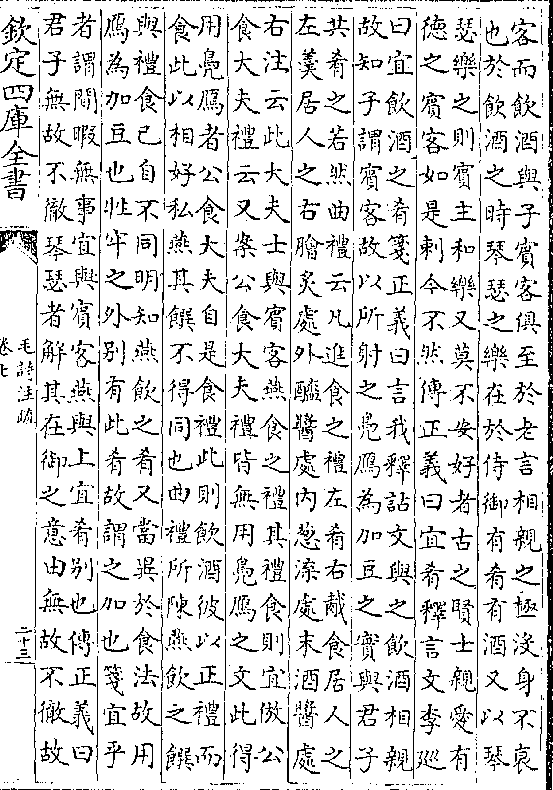 客而飲酒與子賓客俱至於老言相親之極沒身不衰
也於飲酒之時琴瑟之樂在於侍御有肴有酒又以琴
瑟樂之則賓主和樂又莫不安好者古之賢士親愛有
德之賓客如是刺今不然傳正義曰宜肴釋言文李廵
曰宜飲酒之肴箋正義曰言我釋詁文與之飲酒相親
故知子謂賓客故以所射之鳬鴈為加豆之實與君子
共肴之若然曲禮云凡進食之禮左肴右胾食居人之
左羹居人之右膾炙處外醯醬處內葱渫處末酒醬處
右注云此大夫士與賓客燕食之禮其禮食則宜倣公
食大夫禮云又案公食大夫禮皆無用鳬鴈之文此得
用鳬鴈者公食大夫自是食禮此則飲酒彼以正禮而
食此以相好私燕其饌不得同也曲禮所陳燕飲之饌
與禮食已自不同明知燕飲之肴又當異於食法故用
鴈為加豆也牲牢之外別有此肴故謂之加也箋宜乎
者謂閒暇無事宜與賓客燕與上宜肴別也傳正義曰
君子無故不徹琴瑟者解其在御之意由無故不徹故
欽定四庫全書
毛詩注疏
卷七
二十三